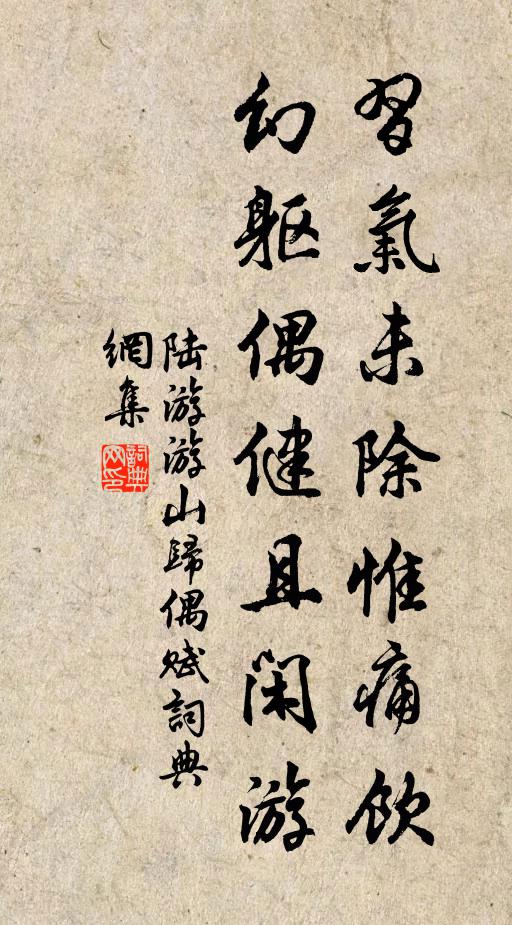 習氣未除惟痛飲
幻軀偶健且閑游
陆游游山歸偶賦詞典
網集
詞典
网印